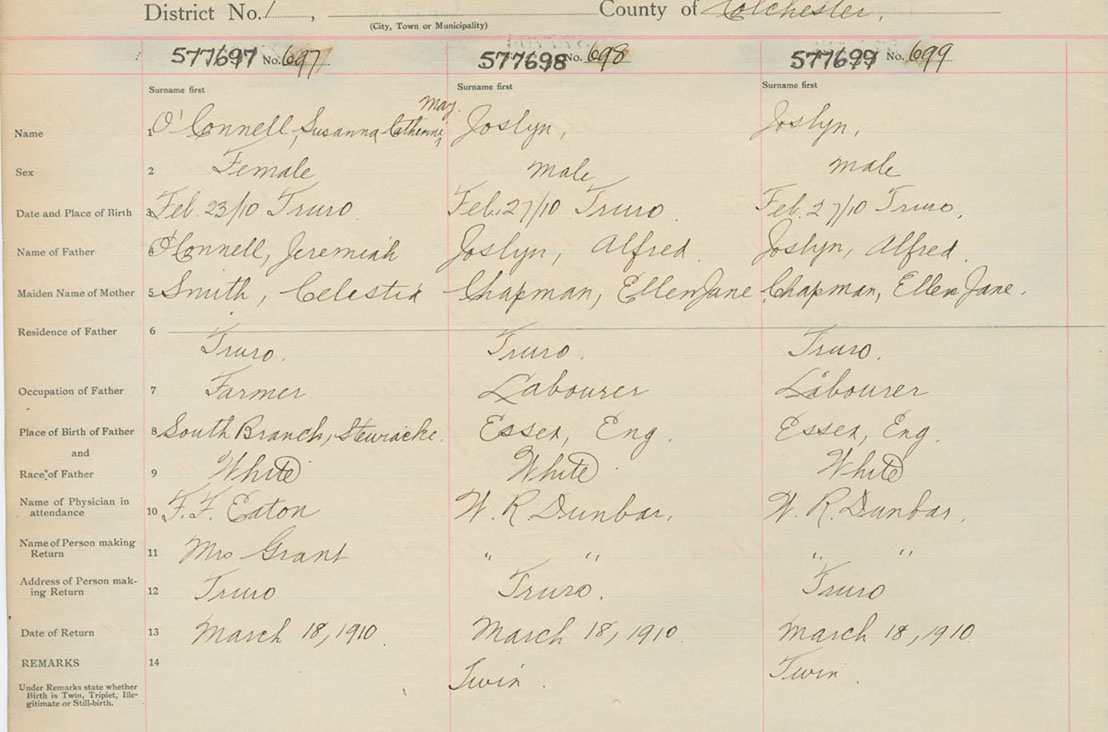 District No. 1 , County of Colchester,
(City, Town or Municipality)
577697 No. 697 577698 No. 698 577699 No. 699
Surname first Surname first Surname first
May
Name 1 O'Connell, Susanna Catherine, Joslyn, Joslyn,
Sex 2 Female male male
Date and Place of Birth 3 Feb. 23/10 Truro. Feb. 27/10 Truro. Feb. 27/10 Truro,
Name of Father 4 O'Connell, Jeremiah Joslyn, Alfred. Joslyn, Alfred.
Maiden Name of Mother 5 Smith, Celestia Chapman, Ellen Jane Chapman, Ellen Jane.
Residence of Father 6
Truro. Truro. Truro.
Occupation of Father 7 Farmer Labourer Labourer
Place of Birth of Father 8 South Branch, Stewiacke. Essex, Eng. Essex, Eng.
and
Race of Father 9 White White White
Name of Physician in
attendance 10 F. F. Eaton W. R. Dunbar, W. R. Dunbar,
Name of Person making
Return 11 Mrs Grant " " " "
Address of Person mak-
ing Return 12 Truro Truro. Truro
Date of Return 13 March 18, 1910. March 18, 1910. March 18, 1910.
REMARKS 14 Twin. Twin.
Under Remarks state whether
Birth is Twin, Triplet, Ille-
gitimate or Still-birth.